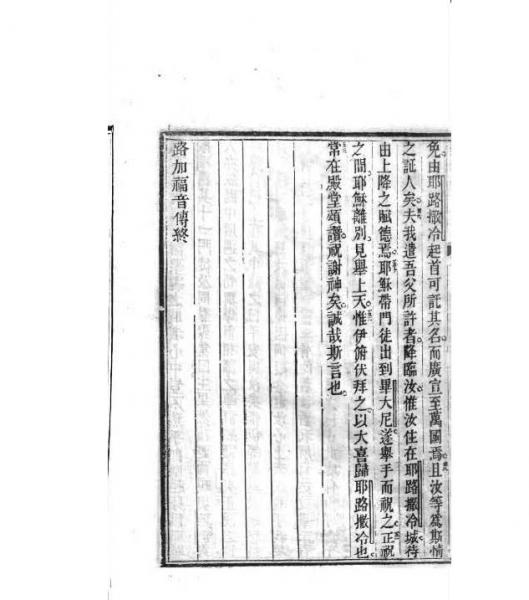 免由耶路撒冷起首可託其名而廣宣至萬國焉且汝等爲斯情
之証人矣夫我遣吾父所許者降臨汝惟汝住在耶路撒冷城待
由上降之賦德焉耶穌帶門徒出到畢大尼遂舉手而祝之正祝
之間耶穌離別見舉上天惟伊俯伏拜之以大喜歸耶路撒冷也
常在殿堂頌讚祝謝神矣誠哉斯言也
路加福音傳終